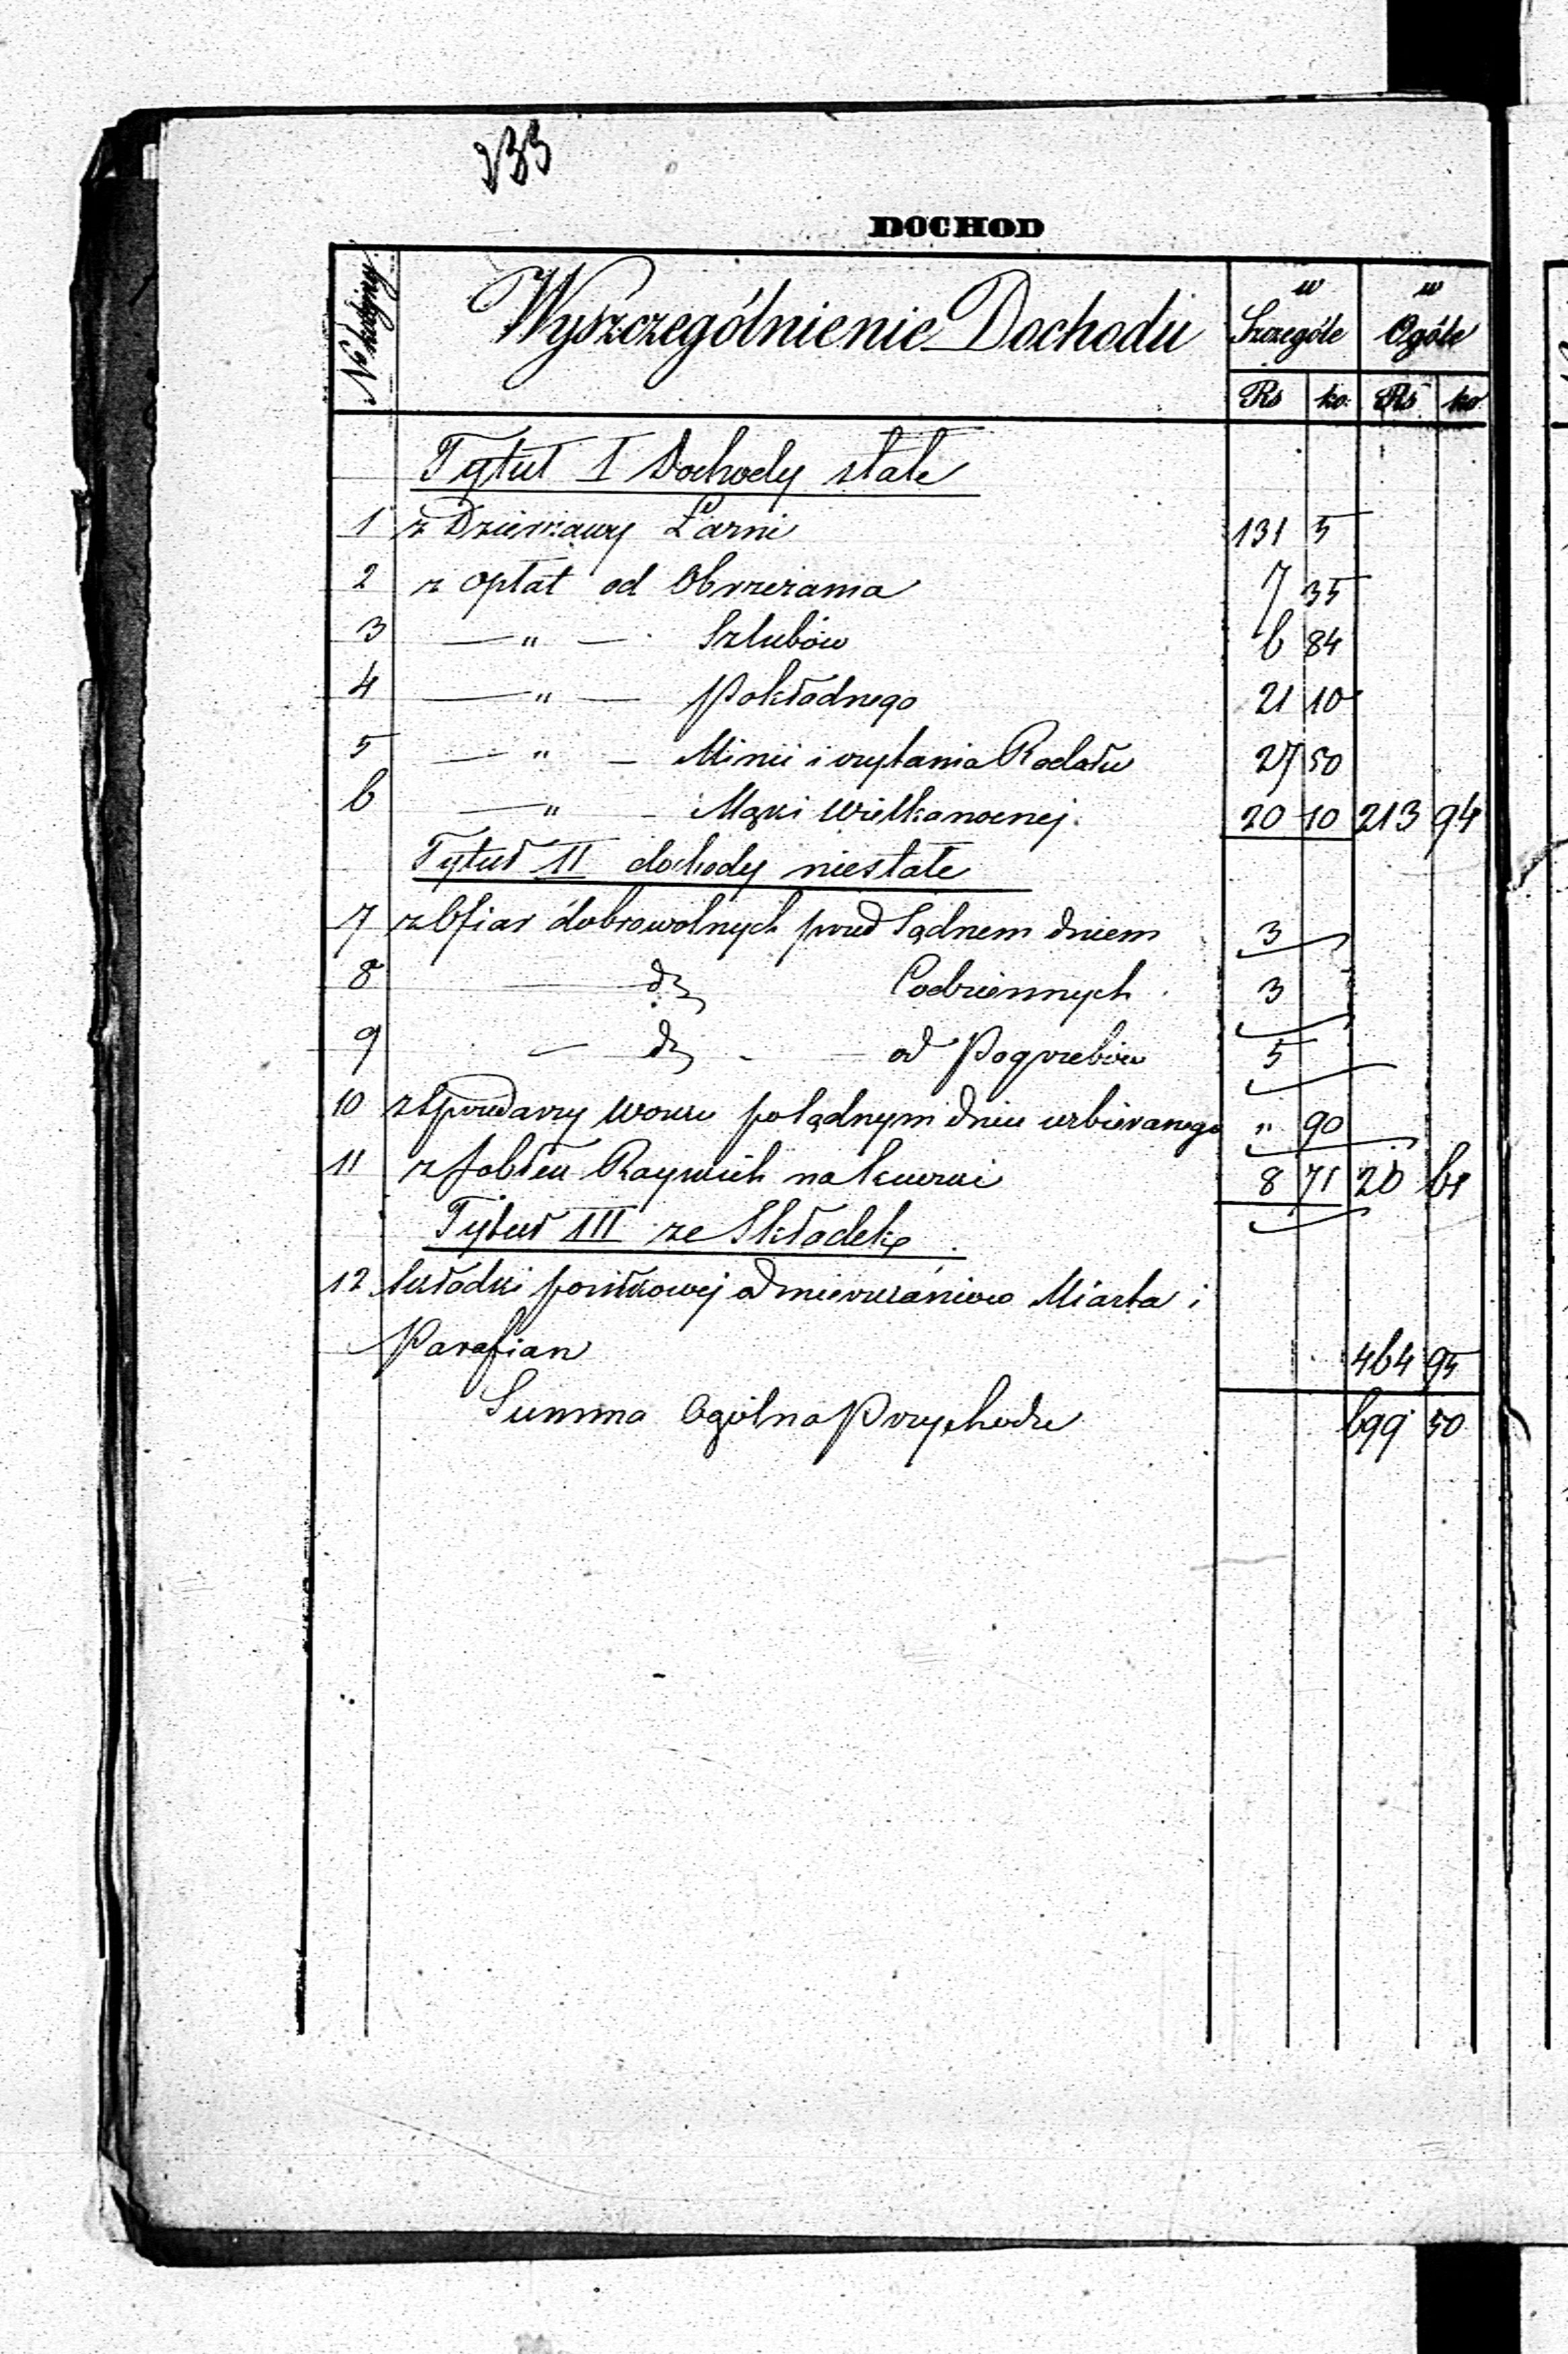 333
DOCHOD
No kolejny Wyszczególnienie Dochodu w Szczególe w Ogóle
Rs ko. Rs ko
Tytuł I Dochody stałe
1 z Dzierzawy Łazni 131 5
2 z opłat od Obrzezania 7 35
3 — " — Szlubów 6 84
4 — " — Pokładnego 21 10
5 — " — Minii i czytania Rodału 27 50
6 — " — Mąki Wielkanocnej. 20 10 213 94
Tytuł II dochody niestałe
7 z Ofiar dobrowolnych przed Sądnem dniem 3
8 — dz Codziennych 3
9 — dz — od Pogrzebów 5
10 z Sprzedarzy wosku po Sądnym dniu uzbieranego " 90
11 z Jabłek Rayskich na kuczki 8 71 20 61
Tytuł III ze Składek
12 Składki posiłkowej od mieszkańców Miasta i
Parafian 464 95
Summa Ogólna Przychodu 699 50